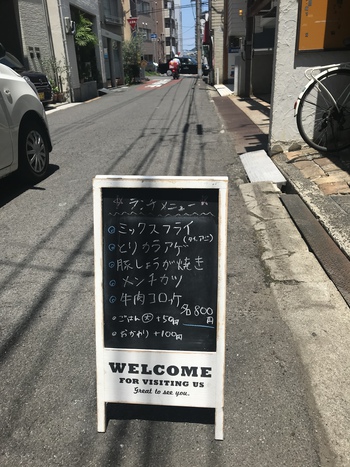 ランチメニュー
ミックスフライ
とりカラアゲ
豚しょうが焼き
メンチカツ
牛肉コロッケ
各800円
ごはん大 +50円
おかわり +100円
WELCOME
FOR VISITING US
Great to see you.